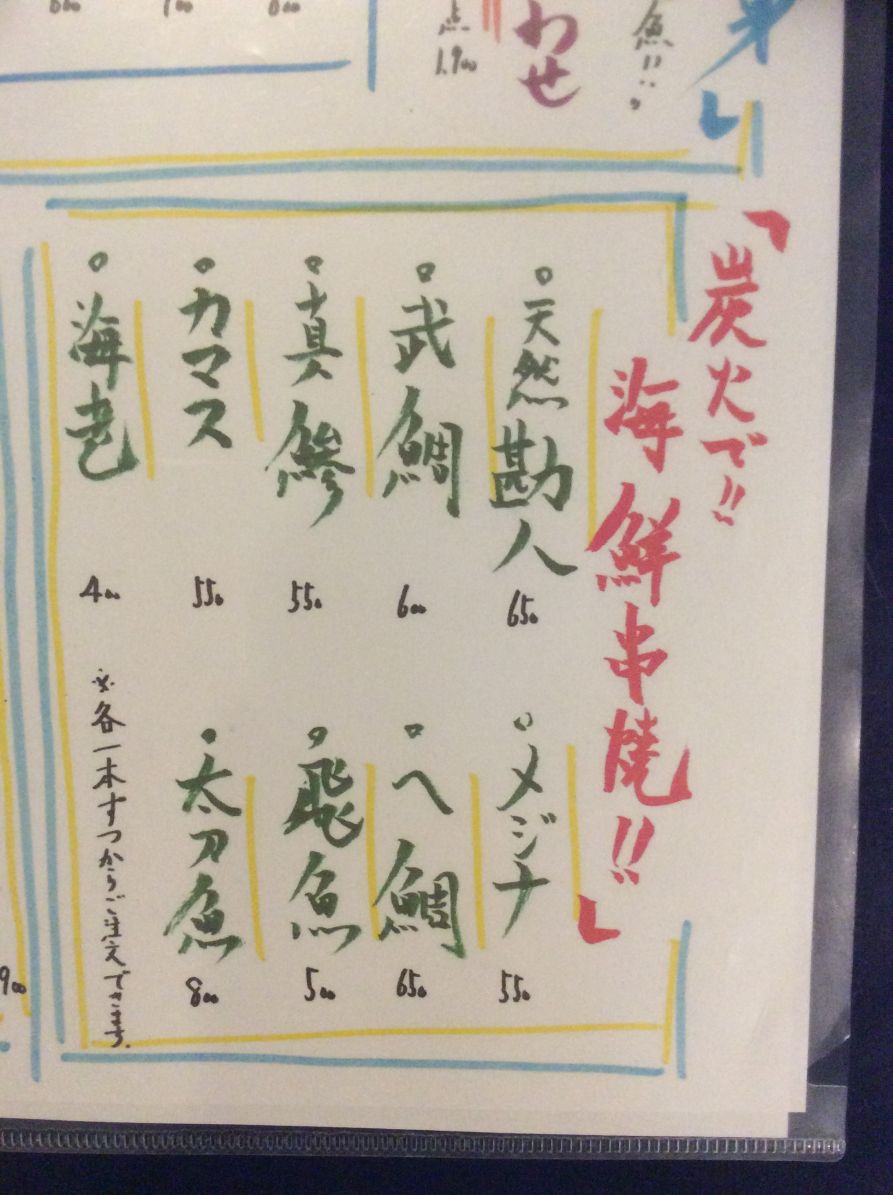 わせ
点
1.900
魚!!
「炭火で!!
海鮮串焼!!」
。天然勘八
650
。武鯛
600
。真鯵
550
。カマス
550
。海老
400
。メジナ
550
。へ鯛
650
。飛魚
500
。太刀魚
800
※各一本ずつからご注文できます。